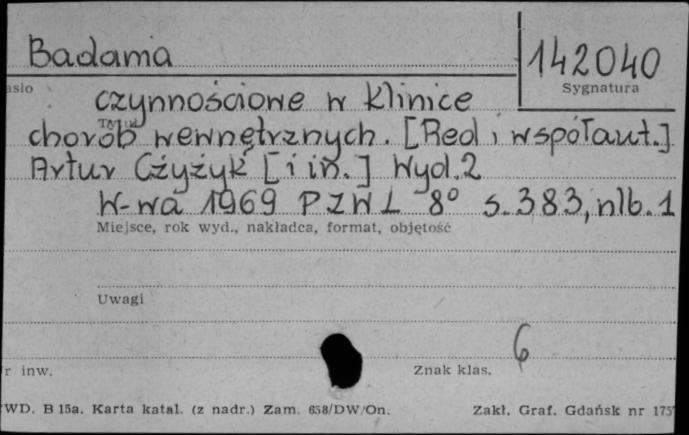 Badania
142040
asło
Sygnatura
czynnościowe w klinice
chorób wewnętrznych. [Red i współaut.]
Artur Czyżyk [i in.] Wyd. 2
W-wa 1969 PZWL 8° s. 383, nlb. 1
Miejsce, rok wyd., nakładca, format, objętość
Uwagi
6
r inw.
Znak klas.
WD. B 15a. Karta katal. (z nadr.) Zam. 658/DW/On.
Zakł. Graf. Gdańsk nr 175